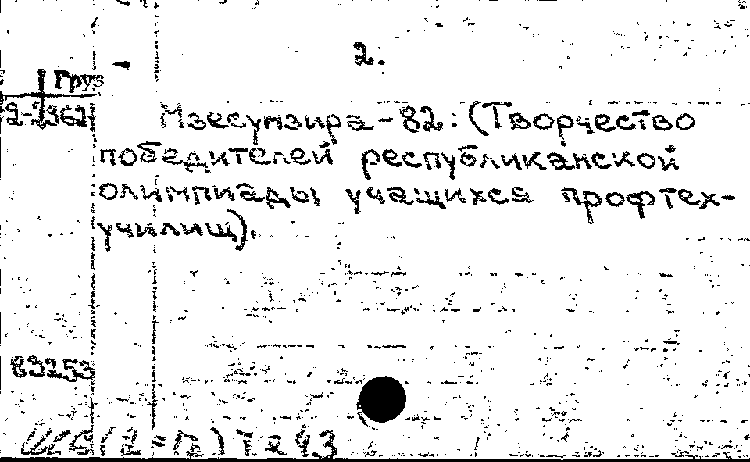 2.
Груз
2-1362
Мзесумзира-82: (Творчество
победителей республиканской
олимпиады учащихся профтех-
училищ).
83253